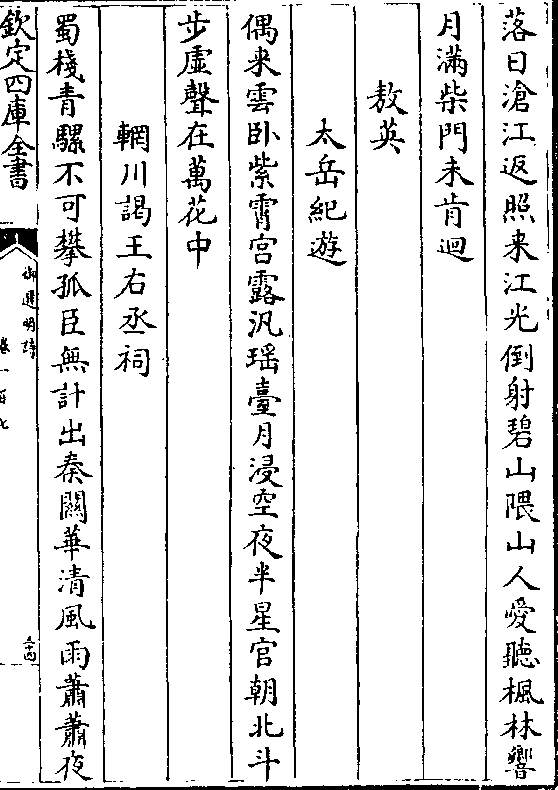 落日滄江返照来江光倒射碧山隈山人愛聽楓林響
月滿柴門未肯迴
敖英
太岳紀遊
偶来雲卧紫霄宫露汎瑶臺月浸空夜半星官朝北斗
步虚聲在萬花中
輞川謁王右丞祠
蜀棧青騾不可攀孤臣無計出秦關華清風雨蕭蕭夜
欽定四庫全書
御選明詩
卷一百七
三四